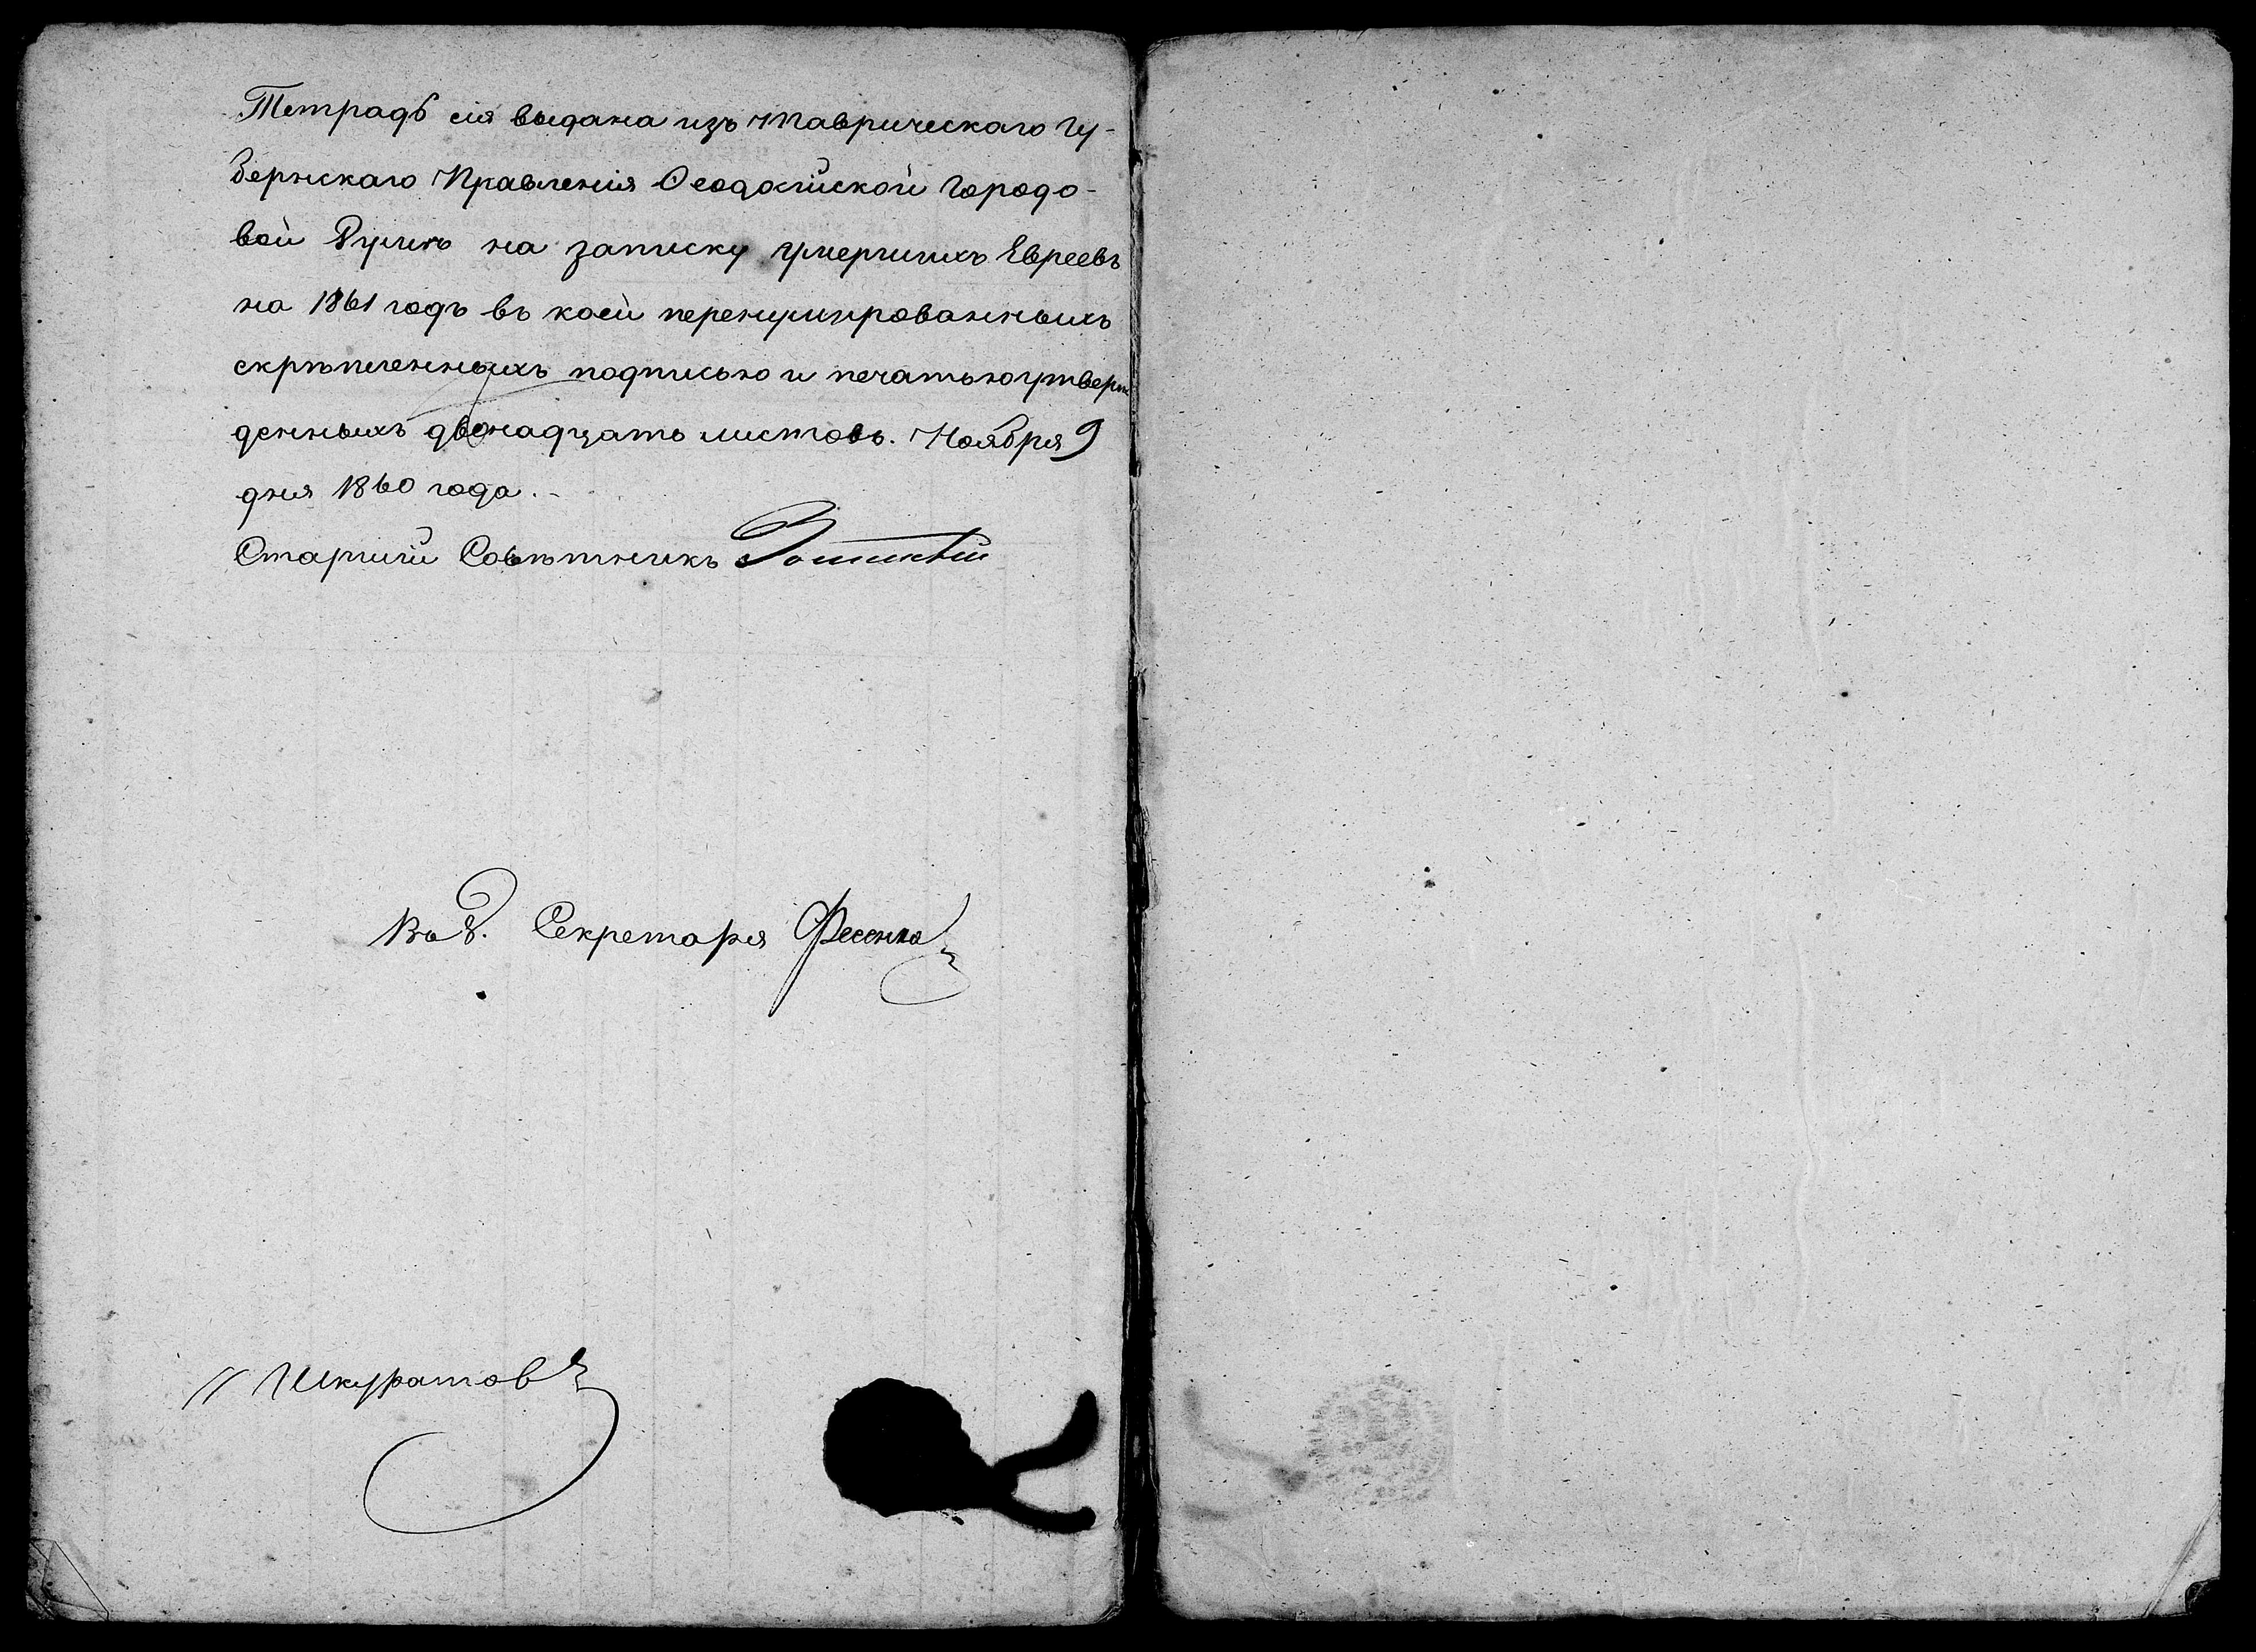 Тетрадь сія выдана изъ Таврическаго Гу-
бернскаго Правленія Ѳеодосійской Городо-
вой Думѣ на записку умершихъ Евреевъ
на 1861 годъ въ коей перенумированныхъ
скрѣпленныхъ подписью и печатью утверж
денныхъ двенадцать листовъ. Ноября 9
дня 1860 года.
Старшій Совѣтникъ
Секретаря Фесенко
Шкуратовъ